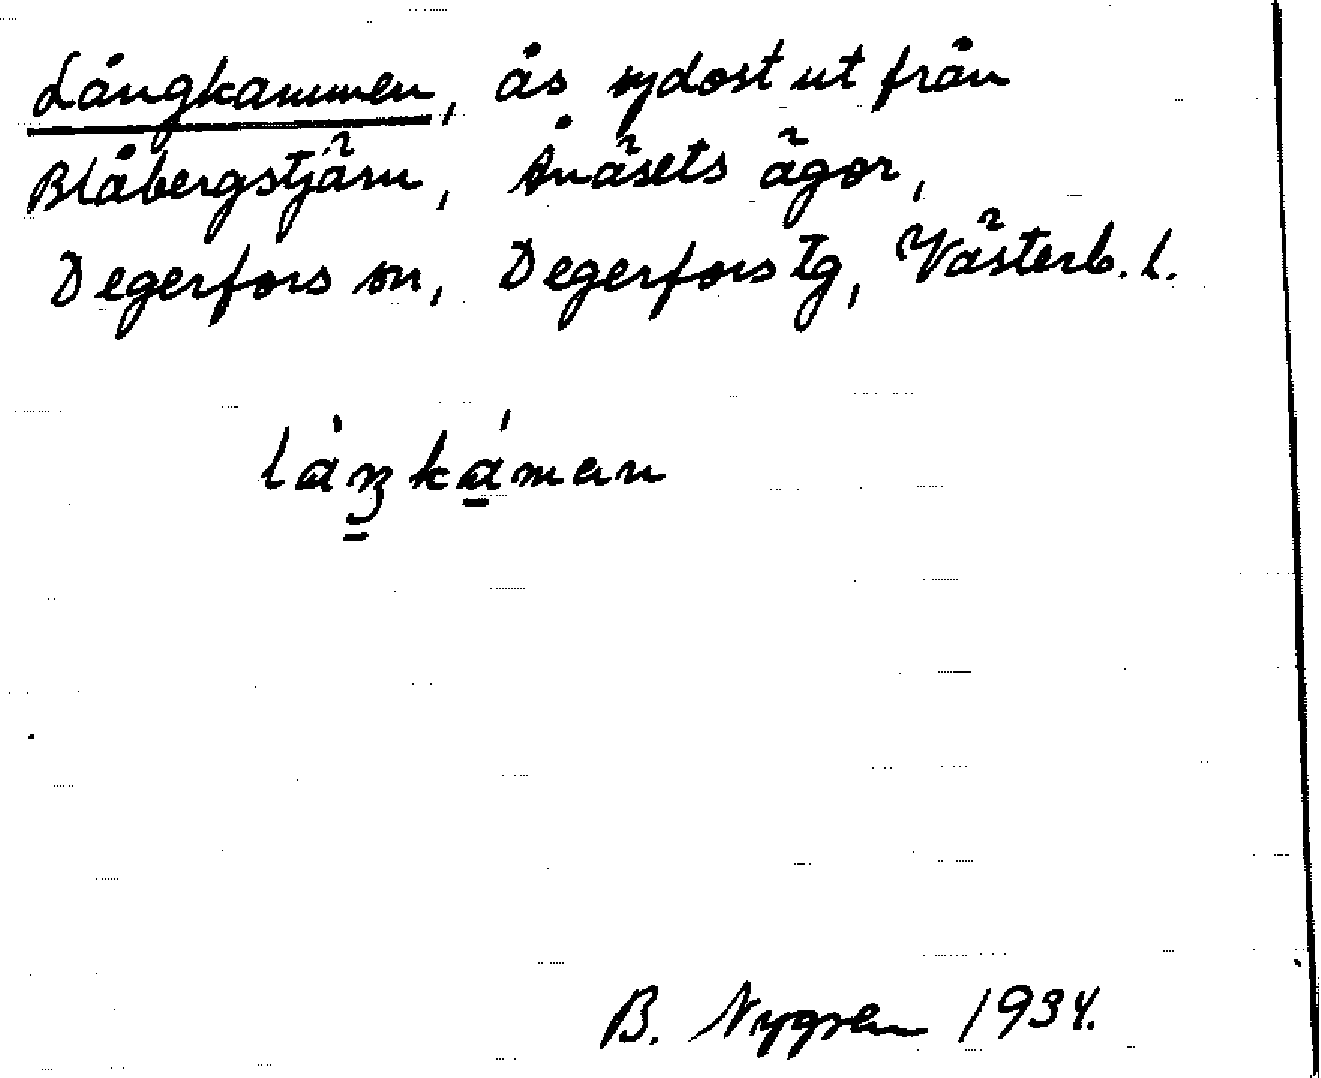 Långkammen, ås sydost ut från
Blåbergstjärn, Ånäsets ägor,
Degerfors sn, Degerfors tg, Västerb. l.
B. Nygren 1934.